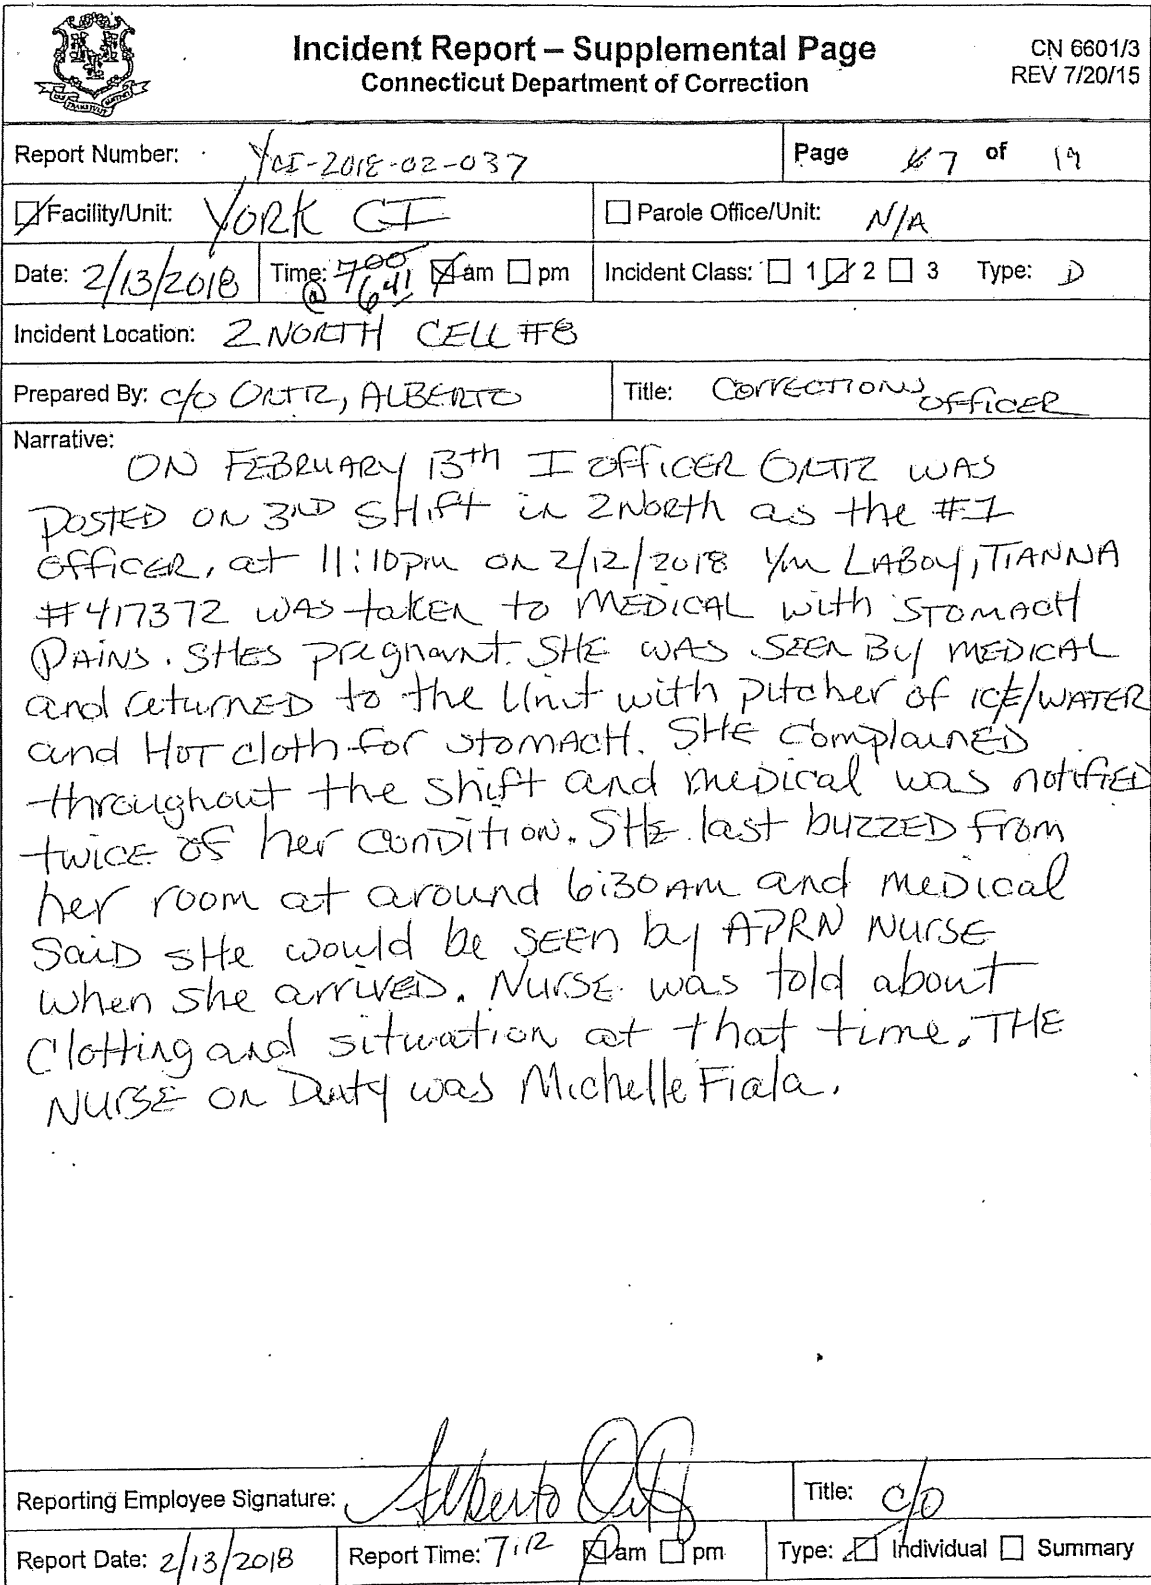 Incident Report – Supplemental Page
Connecticut Department of Correction
CN 6601/3
REV 7/20/15
Report Number: YCI-2018-02-037
Page 7 of 19
Facility/Unit: YORK CI
Parole Office/Unit: N/A
Date: 2/13/2018 Time: 700 @ 641 am pm
Incident Class: 1 2 3 Type: D
Incident Location: 2 NORTH CELL #8
Prepared By: C/O ORTIZ, ALBERTO
Title: CORRECTIONS OFFICER
Narrative:
ON FEBRUARY 13th I OFFICER ORTIZ WAS
POSTED ON 3RD SHift in 2North as the #1
OFFICER, at 11:10pm on 2/12/2018 I/m LABOY, TIANNA
#417372 WAS taken to MEDICAL with STOMACH
PAINS. SHES pregnant. SHE WAS SEEN By MEDICAL
and returnED to the Unit with pitcher of ICE/WATER
and HOT cloth for STOMACH. SHE complainED
throughout the shift and medical was notified
twice of her conDition. SHE last buzzED from
her room at around 6:30AM and medical
SaiD sHe would be SEEn by APRN NURSE
when she arrivED. NURSE was told about
Clotting and situation at that time. THE
NURSE on Duty was Michelle Fiala.
Reporting Employee Signature: Alberto Ortiz
Title: C/O
Report Date: 2/13/2018 Report Time: 7:12 am pm
Type: Individual Summary